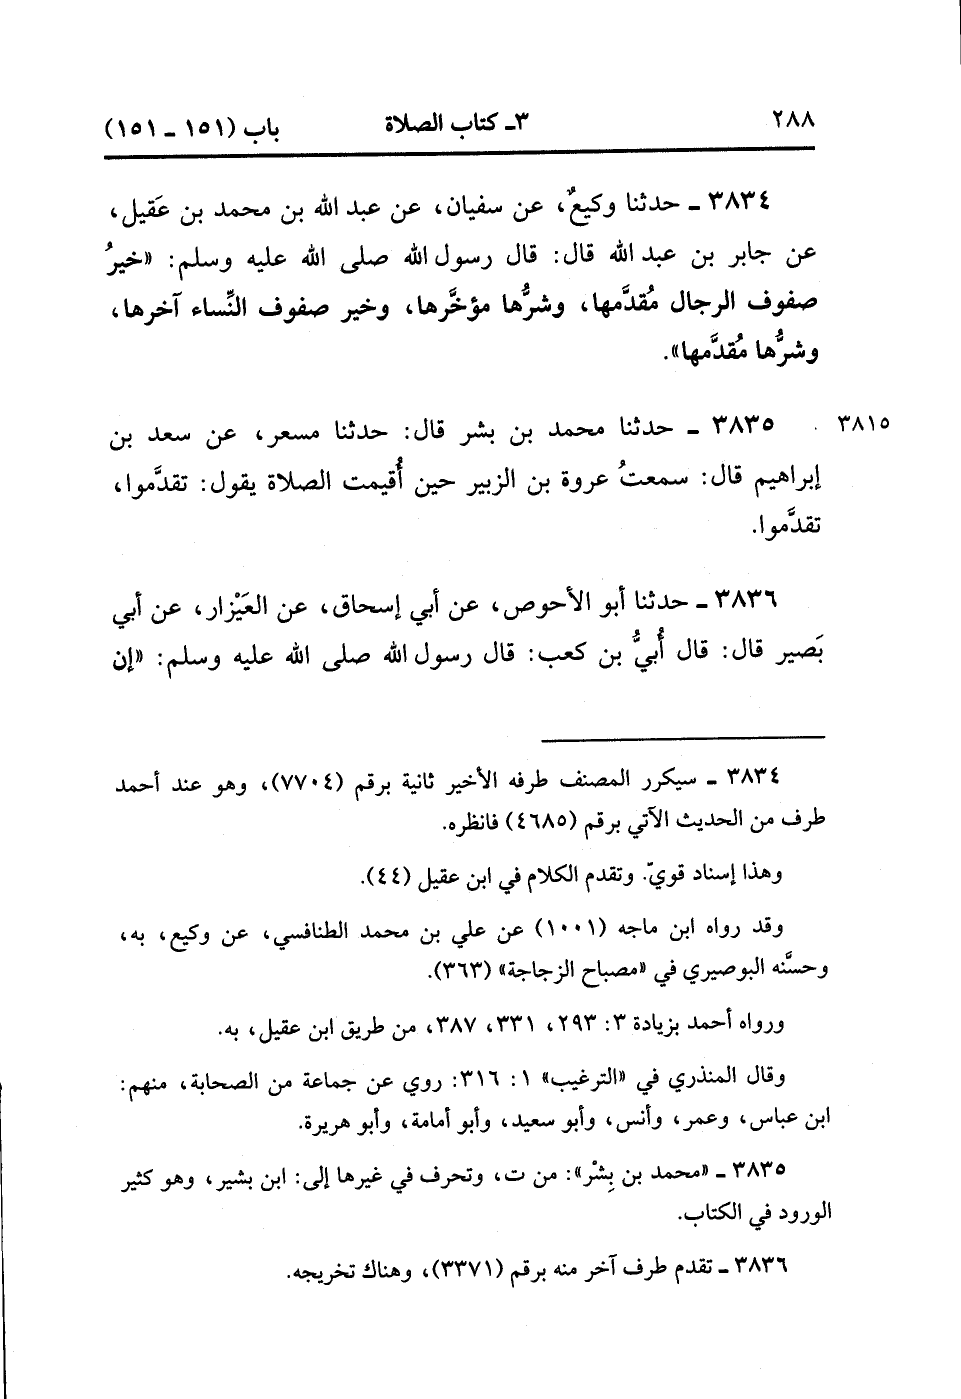 ٢٨٨ ٣ـ كتاب الصلاة باب (١٥١ ـ ١٥١)
٣٨٣٤ ـ حدثنا وكيعٌ، عن سفيان، عن عبد الله بن محمد بن عَقيل،
عن جابر بن عبد الله قال: قال رسول الله صلى الله عليه وسلم: «خيرُ
صفوف الرجال مُقدَّمها، وشرُّها مؤخَّرها، وخير صفوف النِّساء آخرها،
وشرُّها مُقدَّمها».
٣٨١٥ . ٣٨٣٥ ـ حدثنا محمد بن بشر قال: حدثنا مسعر، عن سعد بن
إبراهيم قال: سمعتُ عروة بن الزبير حين أُقيمت الصلاة يقول: تقدَّموا،
تقدَّموا.
٣٨٣٦ ـ حدثنا أبو الأحوص، عن أبي إسحاق، عن العَيْزار، عن أبي
بَصير قال: قال أُبيُّ بن كعب: قال رسول الله صلى الله عليه وسلم: «إن
٣٨٣٤ ـ سيكرر المصنف طرفه الأخير ثانية برقم (٧٧٠٤)، وهو عند أحمد
طرف من الحديث الآتي برقم (٤٦٨٥) فانظره.
وهذا إسناد قويّ. وتقدم الكلام في ابن عقيل (٤٤).
وقد رواه ابن ماجه (١٠٠١) عن علي بن محمد الطنافسي، عن وكيع، به،
وحسَّنه البوصيري في «مصباح الزجاجة» (٣٦٣).
ورواه أحمد بزيادة ٣: ٢٩٣، ٣٣١، ٣٨٧، من طريق ابن عقيل، به.
وقال المنذري في «الترغيب» ١: ٣١٦: روي عن جماعة من الصحابة، منهم:
ابن عباس، وعمر، وأنس، وأبو سعيد، وأبو أمامة، وأبو هريرة.
٣٨٣٥ ـ «محمد بن بِشْر»: من ت، وتحرف في غيرها إلى: ابن بشير، وهو كثير
الورود في الكتاب.
٣٨٣٦ ـ تقدم طرف آخر منه برقم (٣٣٧١)، وهناك تخريجه.